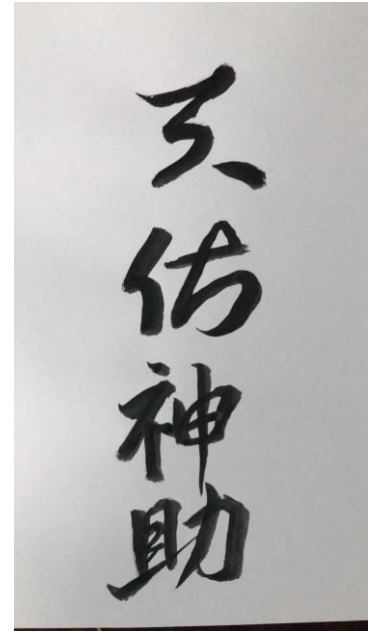 天佑神助